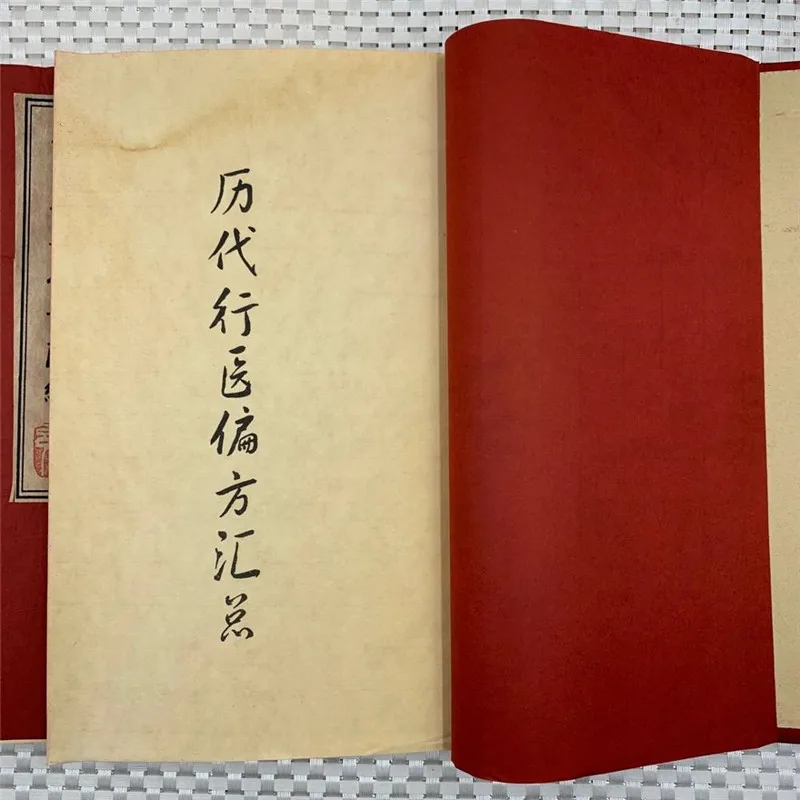 历代行医偏方汇总